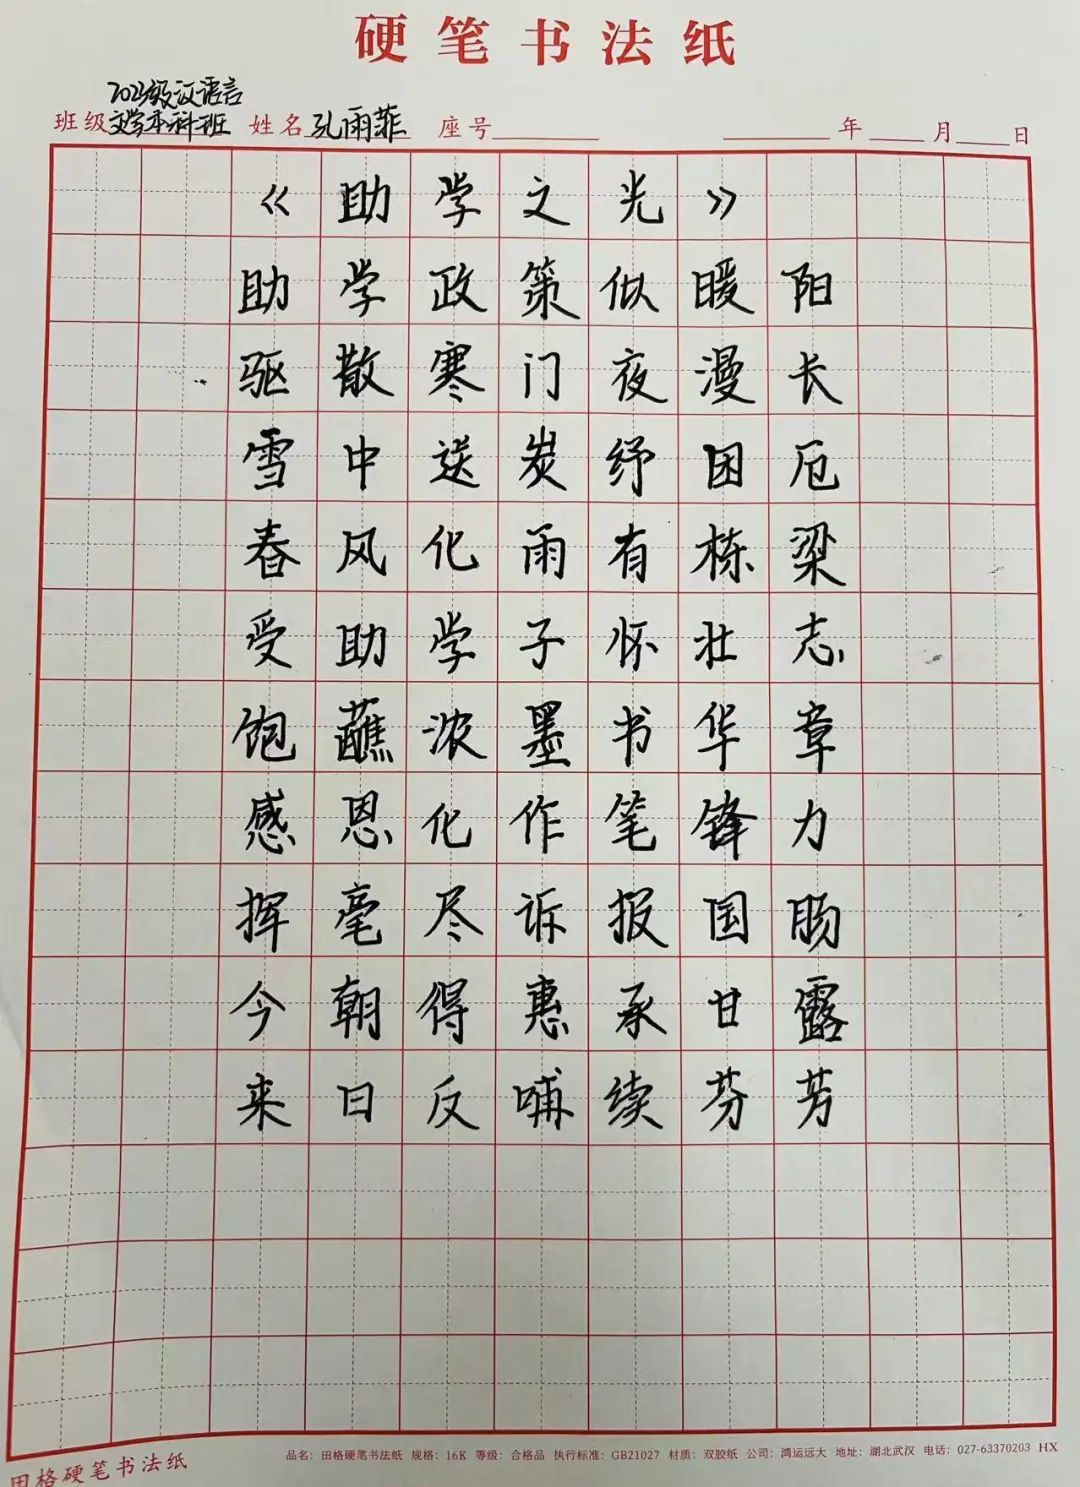 硬笔书法纸
2023级汉语言
班级 文学本科班 姓名 孔雨菲 座号 年 月 日
《助学之光》
助学政策似暖阳
驱散寒门夜漫长
雪中送炭纾困厄
春风化雨有栋梁
受助学子怀壮志
饱蘸浓墨书华章
感恩化作笔锋力
挥毫尽诉报国肠
今朝得惠承甘露
来日反哺续芬芳
品名：田格硬笔书法纸 规格：16K 等级：合格品 执行标准：GB21027 材质：双胶纸 公司：鸿运远大 地址：湖北武汉 电话：027-63370203 HX
田格硬笔书法纸